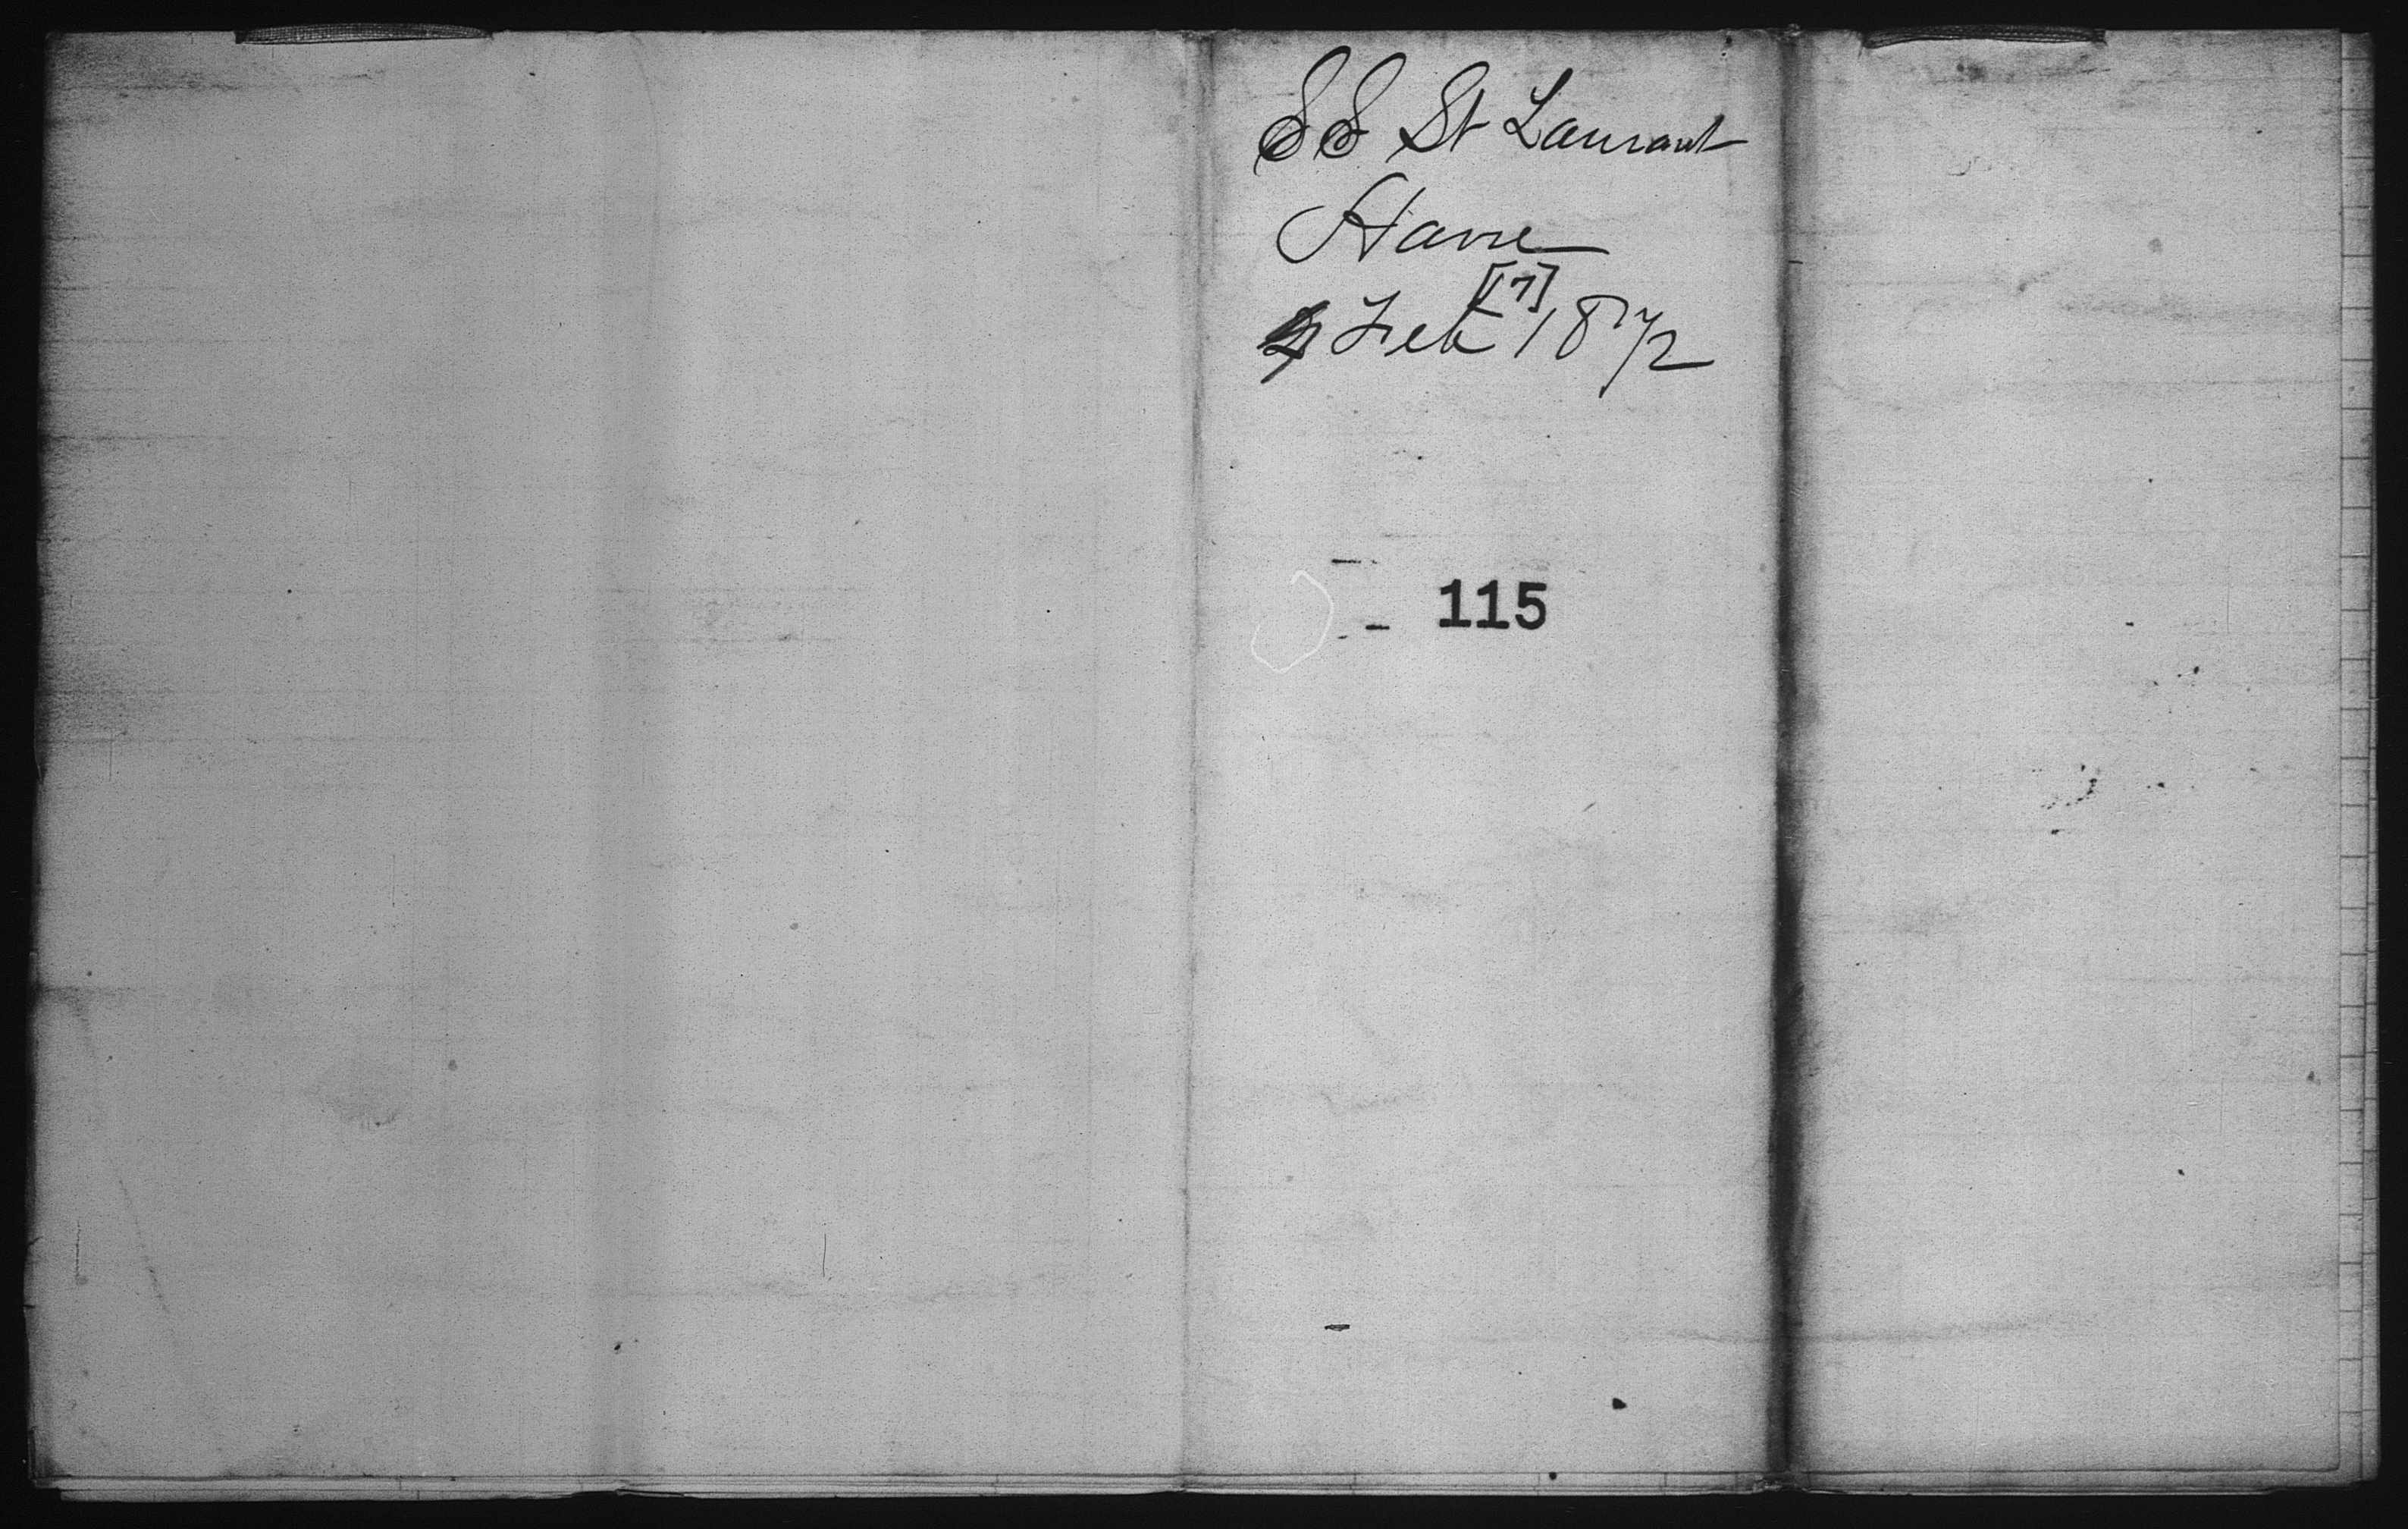 SS St Laurant
Havre
[7]
Feb 1872
115